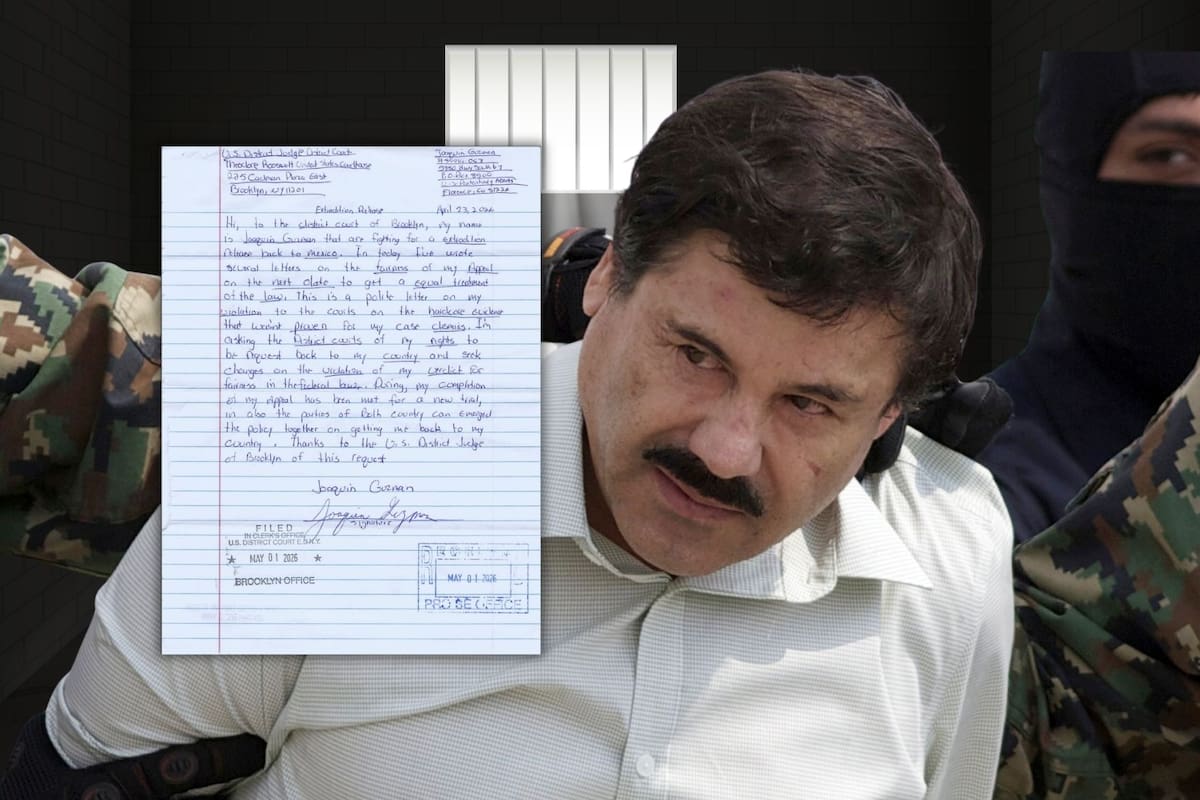 U.S. District Judge District Court
Theodore Roosevelt United States Courthouse
225 Cadman Plaza East
Brooklyn, NY 11201
Joaquin Guzman
P.O. Box 8500
Florence, Co 81226
Extradition Release April 23, 2026
Hi, to the district court of Brooklyn, my name
is Joaquin Guzman that are fighting for a extradition
release back to mexico. In today I've wrote
several letters on the fairness of my Appeal
on the next date to get a equal treatment
of the law. This is a polite letter on my
violation to the courts on the hardcore evidence
that wasn't proven for my case I'm
asking the District courts of my rights to
be request back to my country and seek
changes on the violation of my verdict for
fairness in the federal laws. During, my completion
of my Appeal has been met for a new trial,
in also the parties of Both country can
the policy together on getting me back to my
country. Thanks to the U.S. District Judge
of Brooklyn of this request
Joaquin Guzman
Joaquin Guzman
Signature
FILED
IN CLERK'S OFFICE
U.S. DISTRICT COURT E.D.N.Y.
★ MAY 01 2026 ★
BROOKLYN OFFICE
MAY 01 2026
PRO SE OFFICE